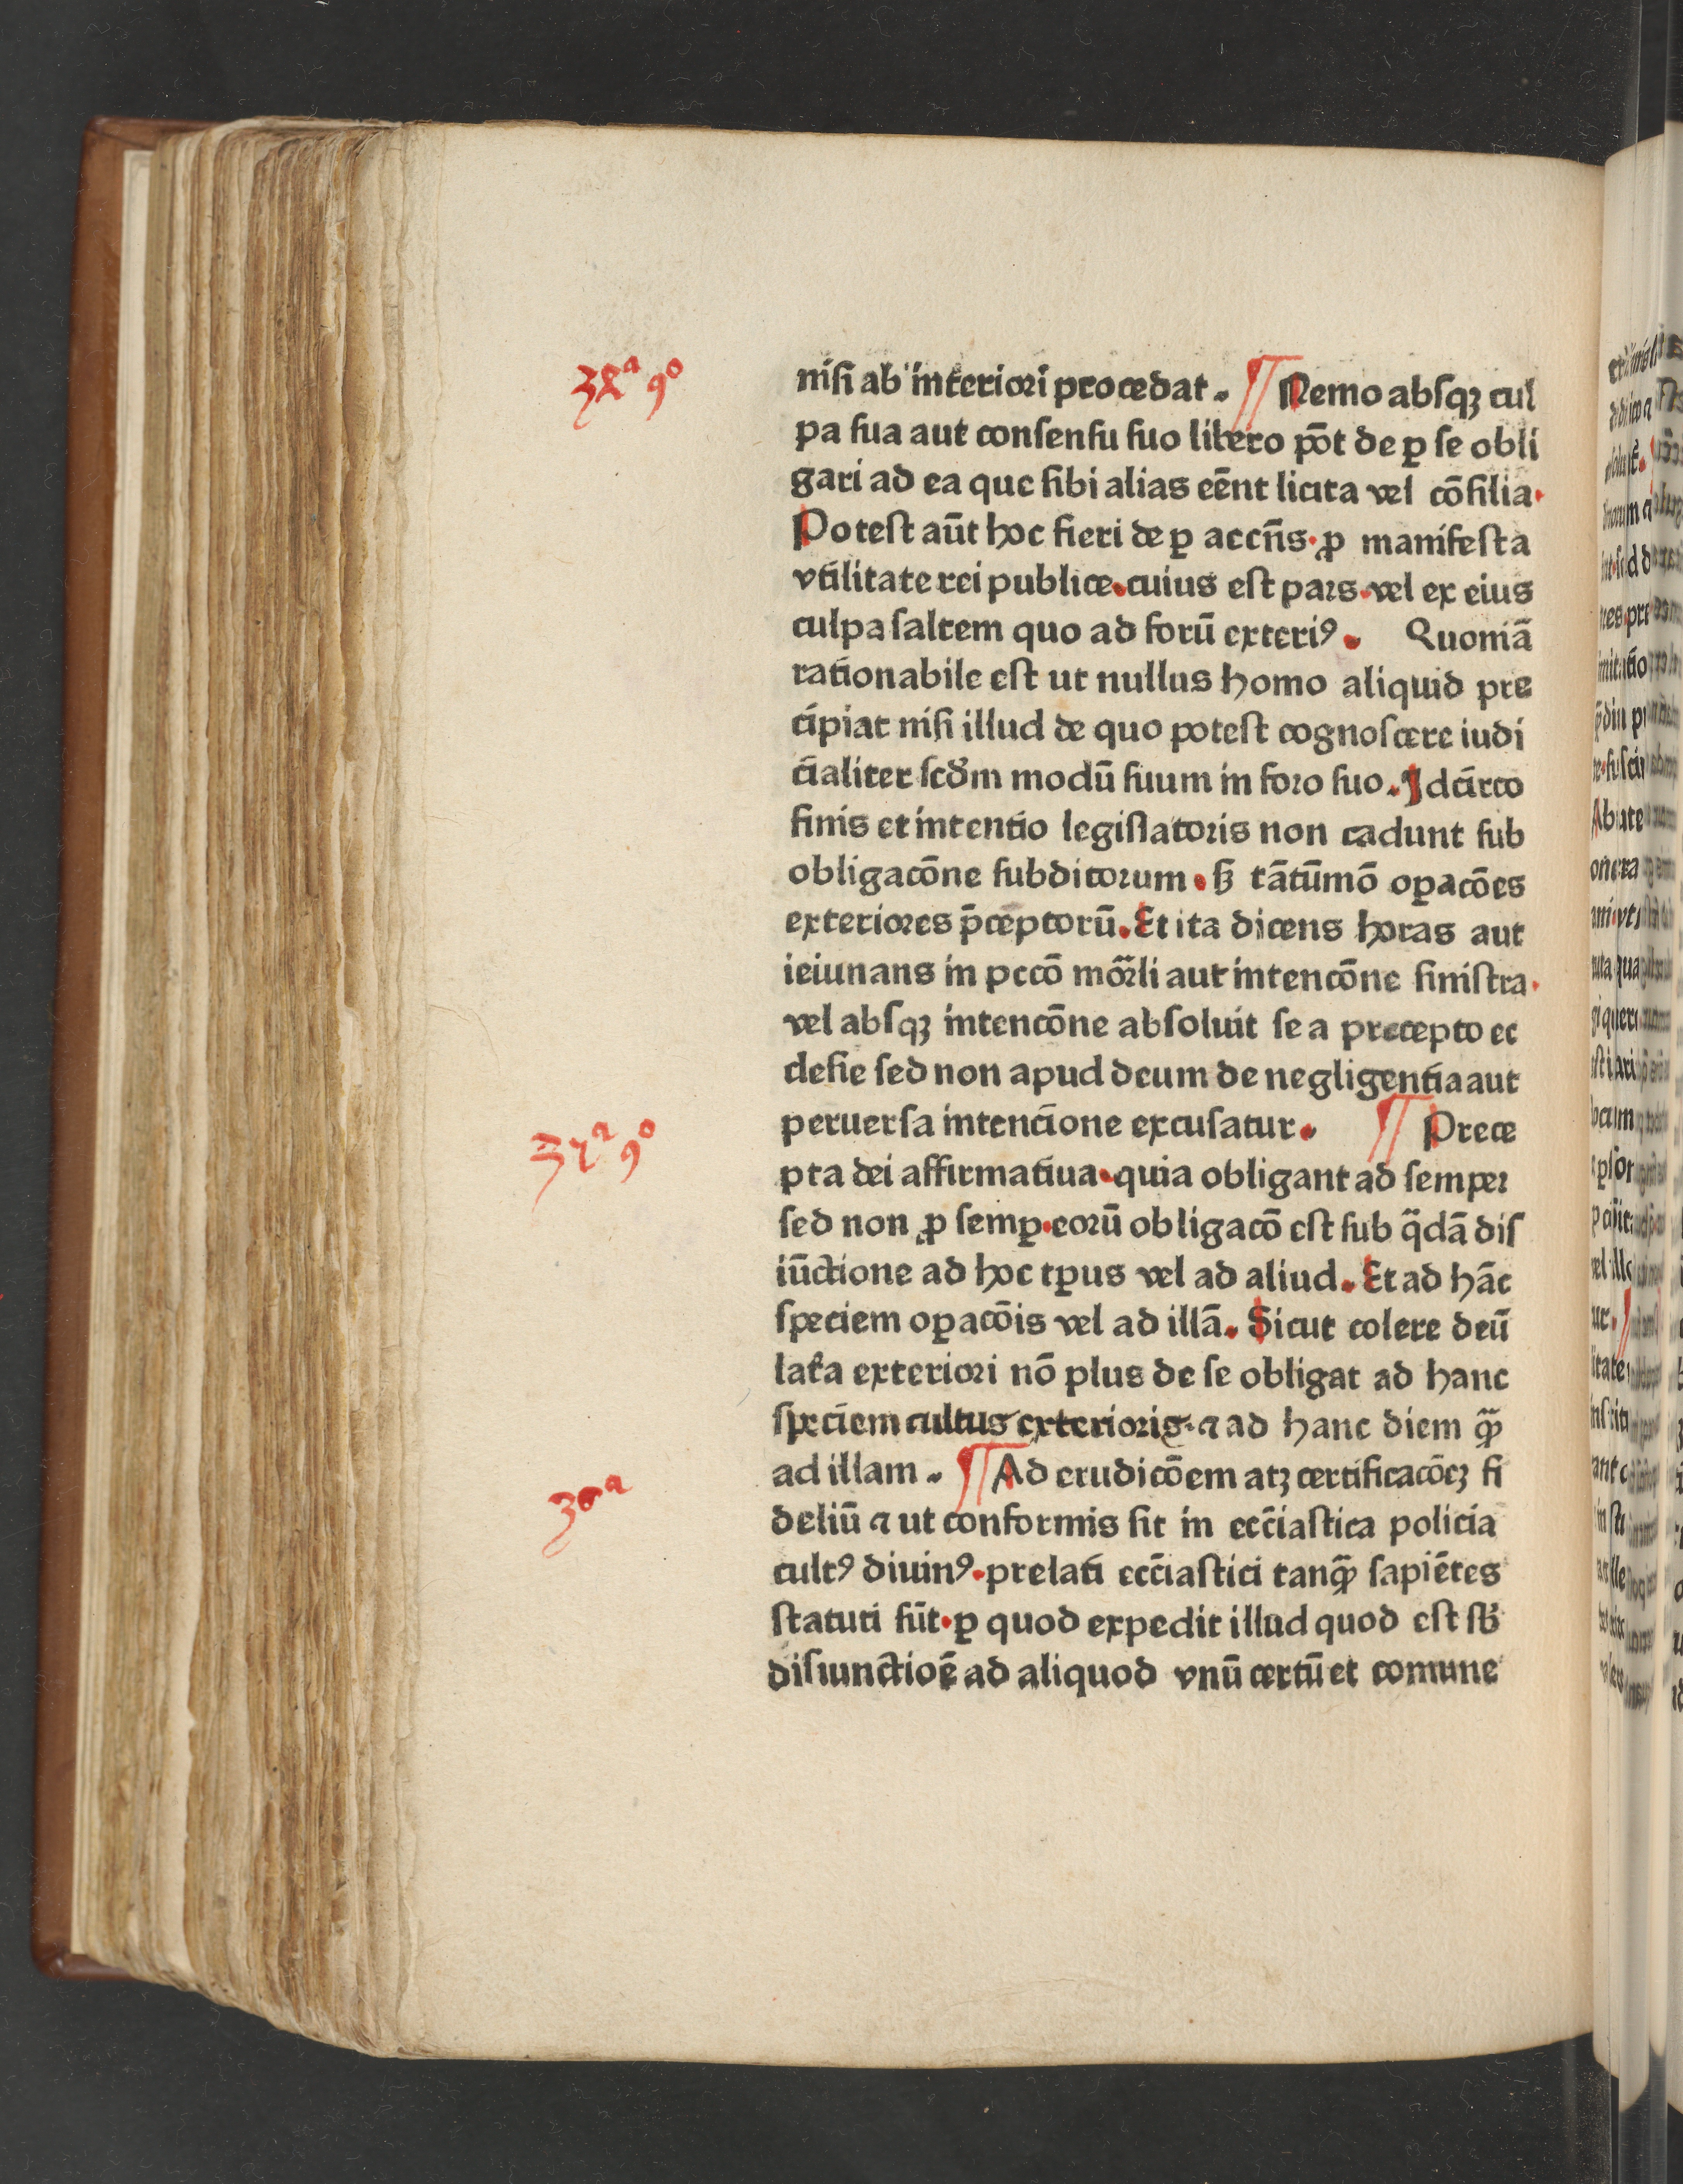 nisi ab interiori procedat. ¶ Nemo absqꝫ cul
pa sua aut consensu suo libero põt de ꝑ se obli
gari ad ea que sibi alias eēnt licita vel cōsilia.
Potest aūt hoc fieri de ꝑ accñs. ꝓ manifesta
vtilitate rei publice. cuius est pars. vel ex eius
culpa saltem quo ad forū exteriꝰ. Quoniā
rationabile est ut nullus homo aliquid pre
cipiat nisi illud de quo potest cognoscere iudi
cialiter scd̄m modū suum in foro suo. Idcirco
finis et intentio legislatoris non cadunt sub
obligacōne subditorum. sꝫ tātūmō oꝑacōes
exteriores p̄ceptorū. Et ita dicens horas aut
ieiunans in pccō mōrli aut intencōne sinistra.
vel absqꝫ intencōne absoluit se a precepto ec
clesie sed non apud deum de negligentia aut
peruersa intencione excusatur. ¶ Prece
pta dei affirmatiua. quia obligant ad semper
sed non ꝓ semꝑ. eorū obligacō est sub q̄dā dis
iūctione ad hoc tꝑus vel ad aliud. Et ad hāc
speciem oꝑacōis vel ad illā. Sicut colere deū
lat̄a exteriori nō plus de se obligat ad hanc
speciem cultus exterioris. ⁊ ad hanc diem q̄ꝫ
ad illam. ¶ Ad erudicōem atꝫ certificacōeꝫ fi
deliū ⁊ ut conformis sit in ecc̄iastica policia
cultꝰ diuinꝰ. prelati ecc̄iastici tanq̄ꝫ sapiētes
statuti sūt. ꝑ quod expedit illud quod est sb̄
disiunctioē ad aliquod vnū certū et comune
32ª 9º
30ª